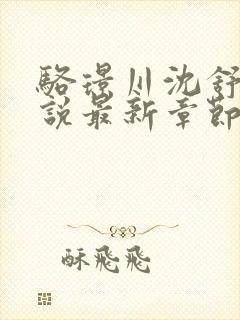 駱璟川沈舒
說最新章節
酥飛飛